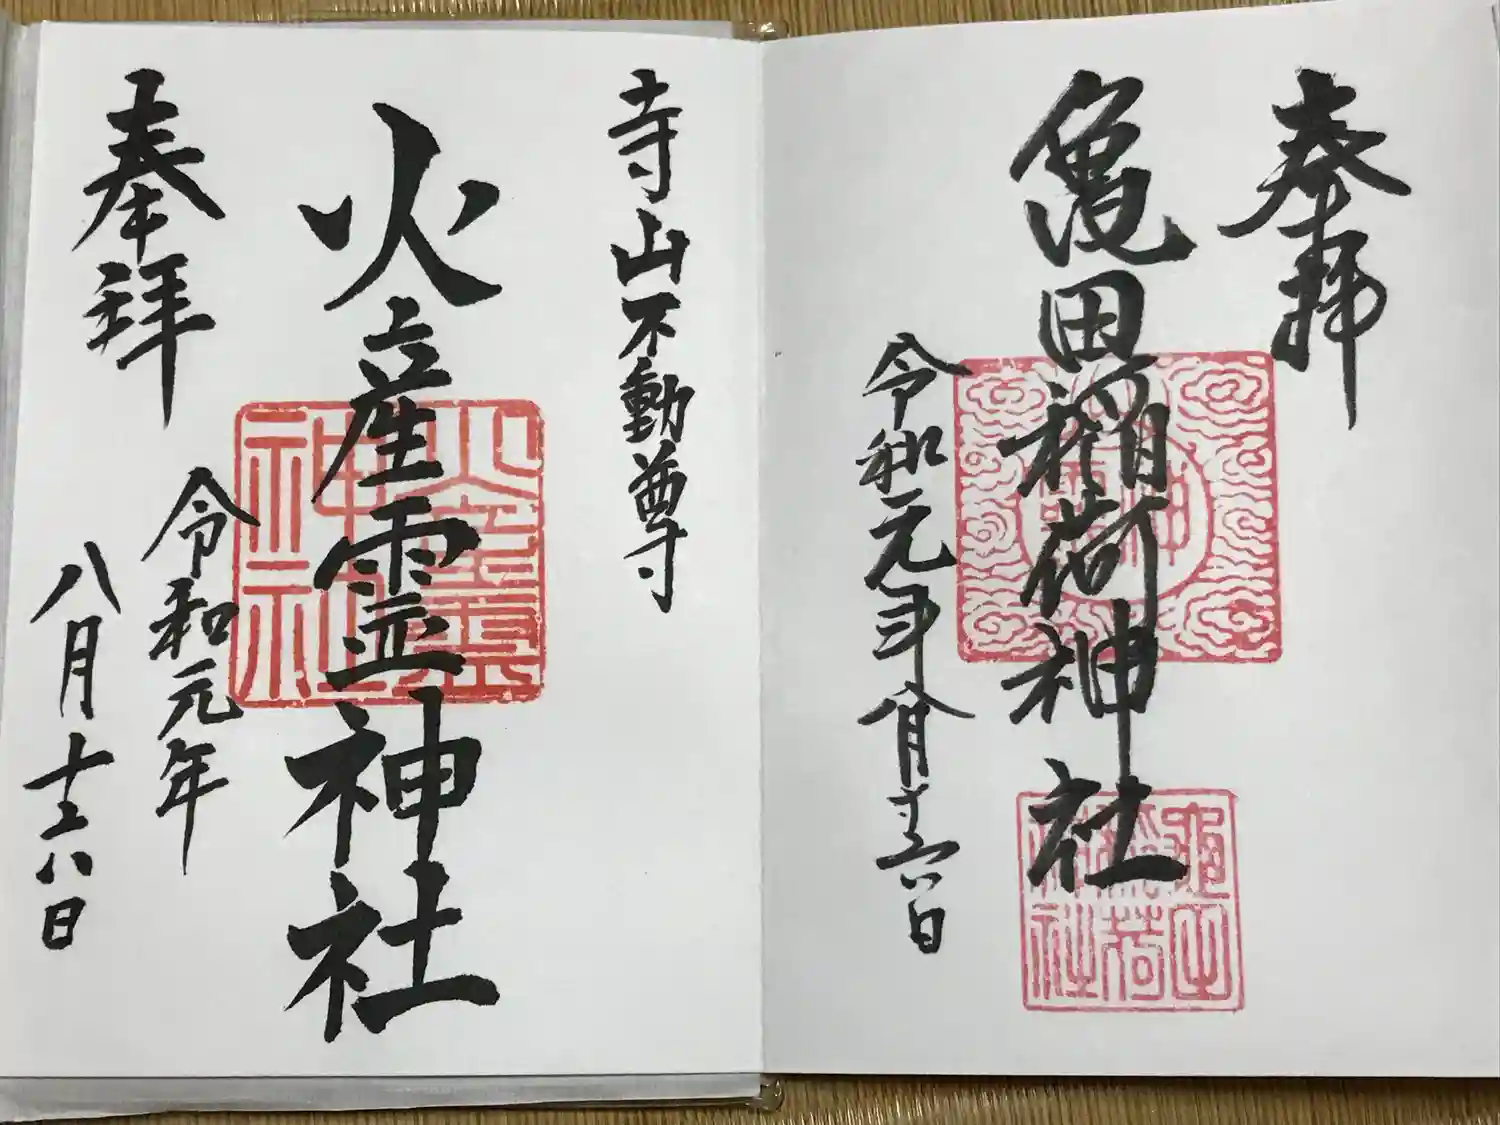 奉拝
亀田稲荷神社
令和元年八月十六日
亀田
稲荷
神社
寺山不動尊
火産霊神社
火産霊
神社
奉拝
令和元年
八月十六日